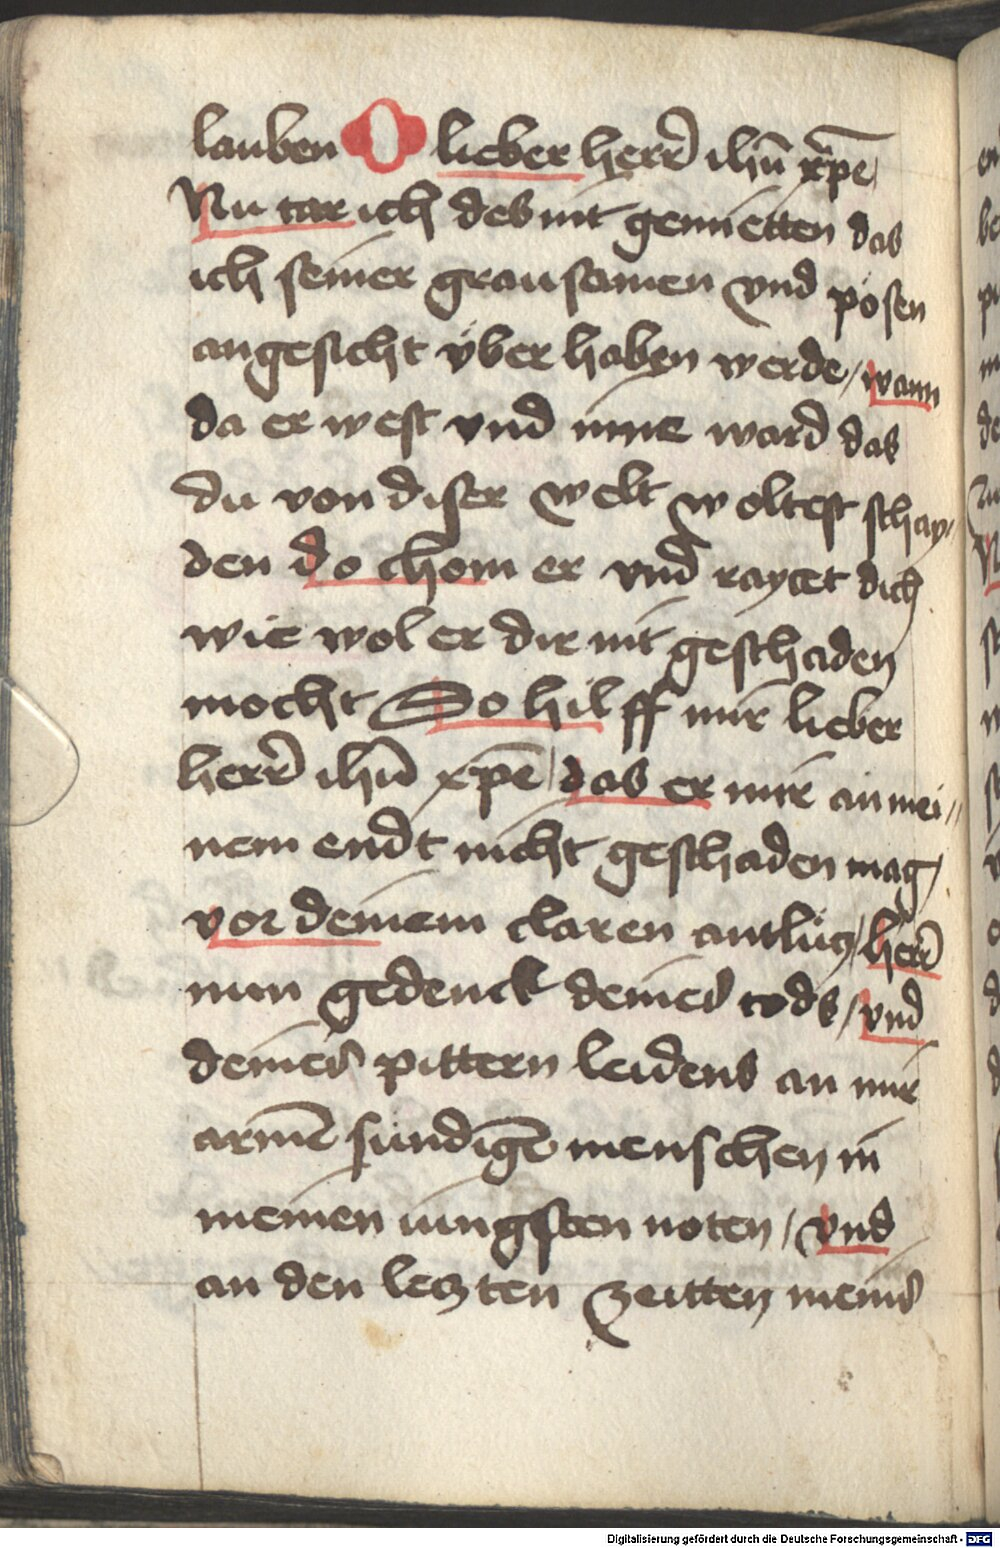 lauben O lieber herr ihū xp̄e
Nu tar ich des nit gemietten das
ich seiner grausamen vnd pösen
angesicht über haben werde / wann
da er west vnd inne ward das
du von diser welt woltest schay„
den do chom er vnd raytzt dich
wie wol er dir nit geschaden
mocht So hilff mir lieber
herr ihū xp̄e das er mir an mei„
nem endt nicht geschaden mag /
vor deinem claren antlütz / herr
nun gedenck deines tods / vnd
deines pittern leidens an mir
armē sündigē menschen in
meinen iungsten noten / vnd
an den letzten zeitten meins
Digitalisierung gefördert durch die Deutsche Forschungsgemeinschaft - DFG